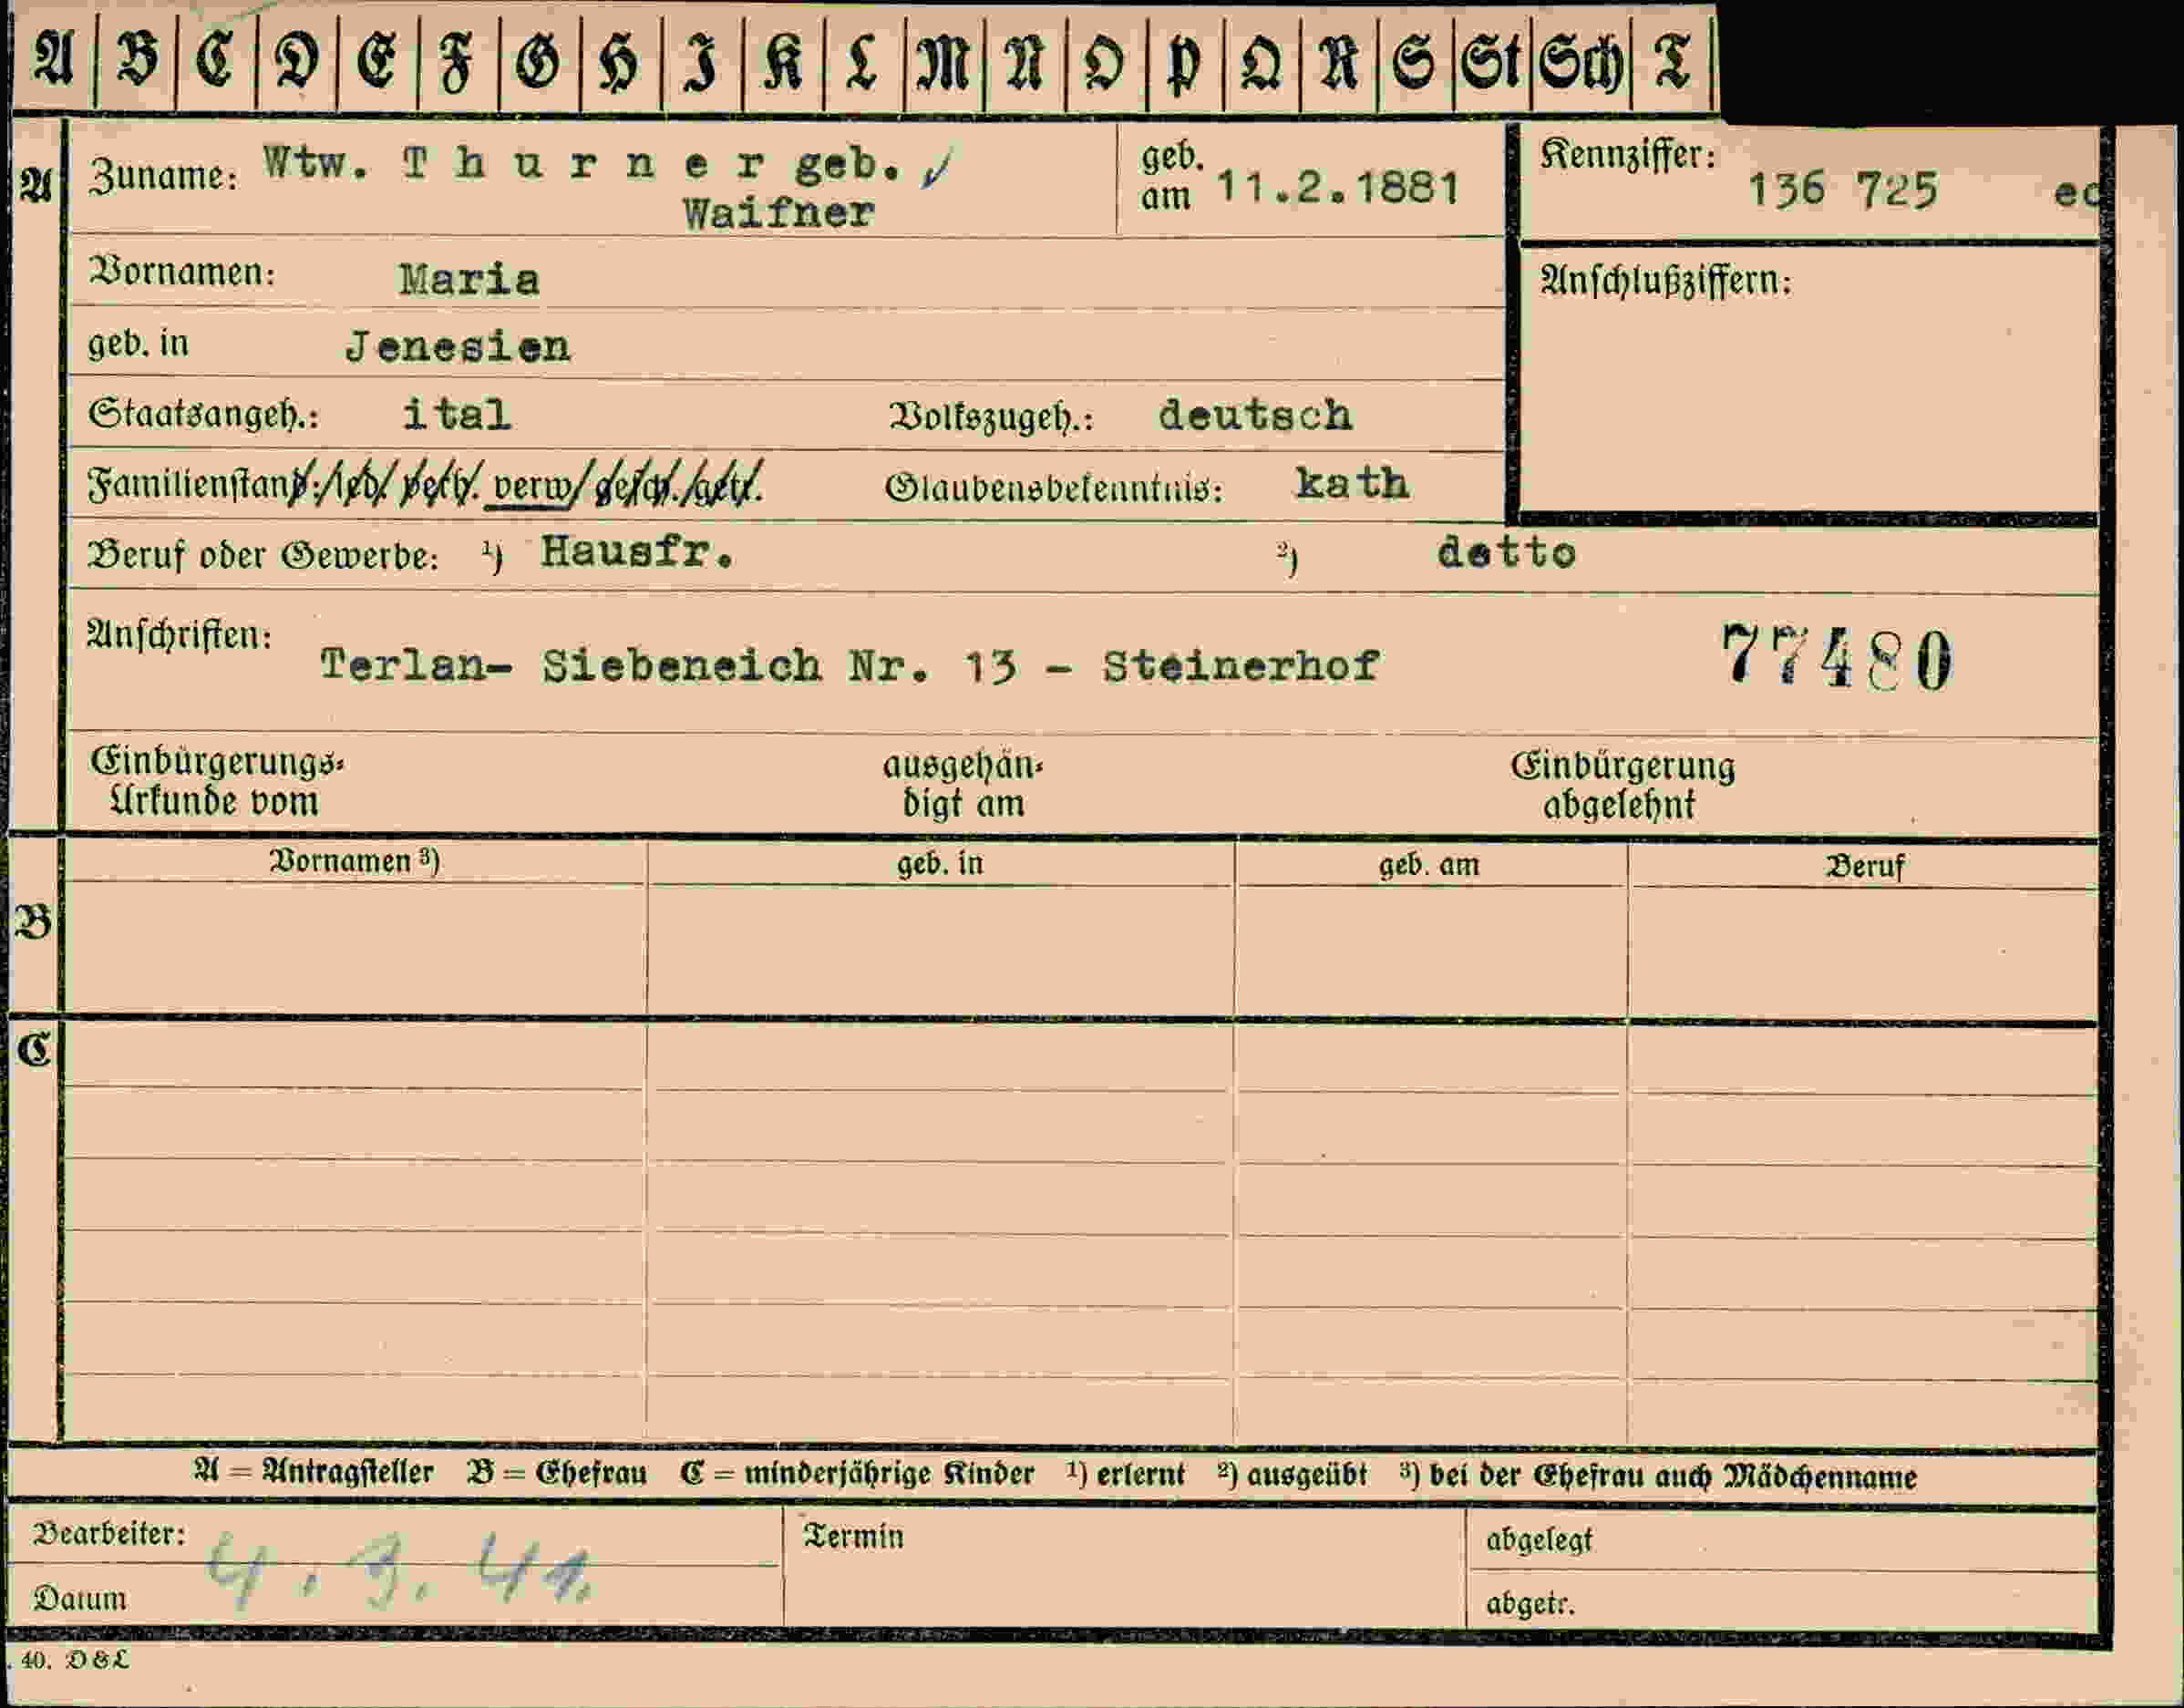 A B C D E F G H I K L M N O P Q R S St Sch T
A Zuname: Wtw. T h u r n e r geb. ✓ geb. am 11.2.1881 Kennziffer: 136 725
Waifner
Vornamen: Maria Anschlußziffern:
geb. in Jenesien
Staatsangeh.: ital Volkszugeh.: deutsch
Familienstand: led. verh. verw. gesch. getr. Glaubensbekenntnis: kath
Beruf oder Gewerbe: ¹) Hausfr. ²) detto
Anschriften: Terlan- Siebeneich Nr. 13 - Steinerhof 77480
Einbürgerungs- ausgehän- Einbürgerung
Urkunde vom digt am abgelehnt
Vornamen ³) geb. in geb. am Beruf
B
C
A = Antragsteller B = Ehefrau C = minderjährige Kinder ¹) erlernt ²) ausgeübt ³) bei der Ehefrau auch Mädchenname
Bearbeiter: Termin abgelegt
4. 3. 41.
Datum abgetr.
. 40. D & L